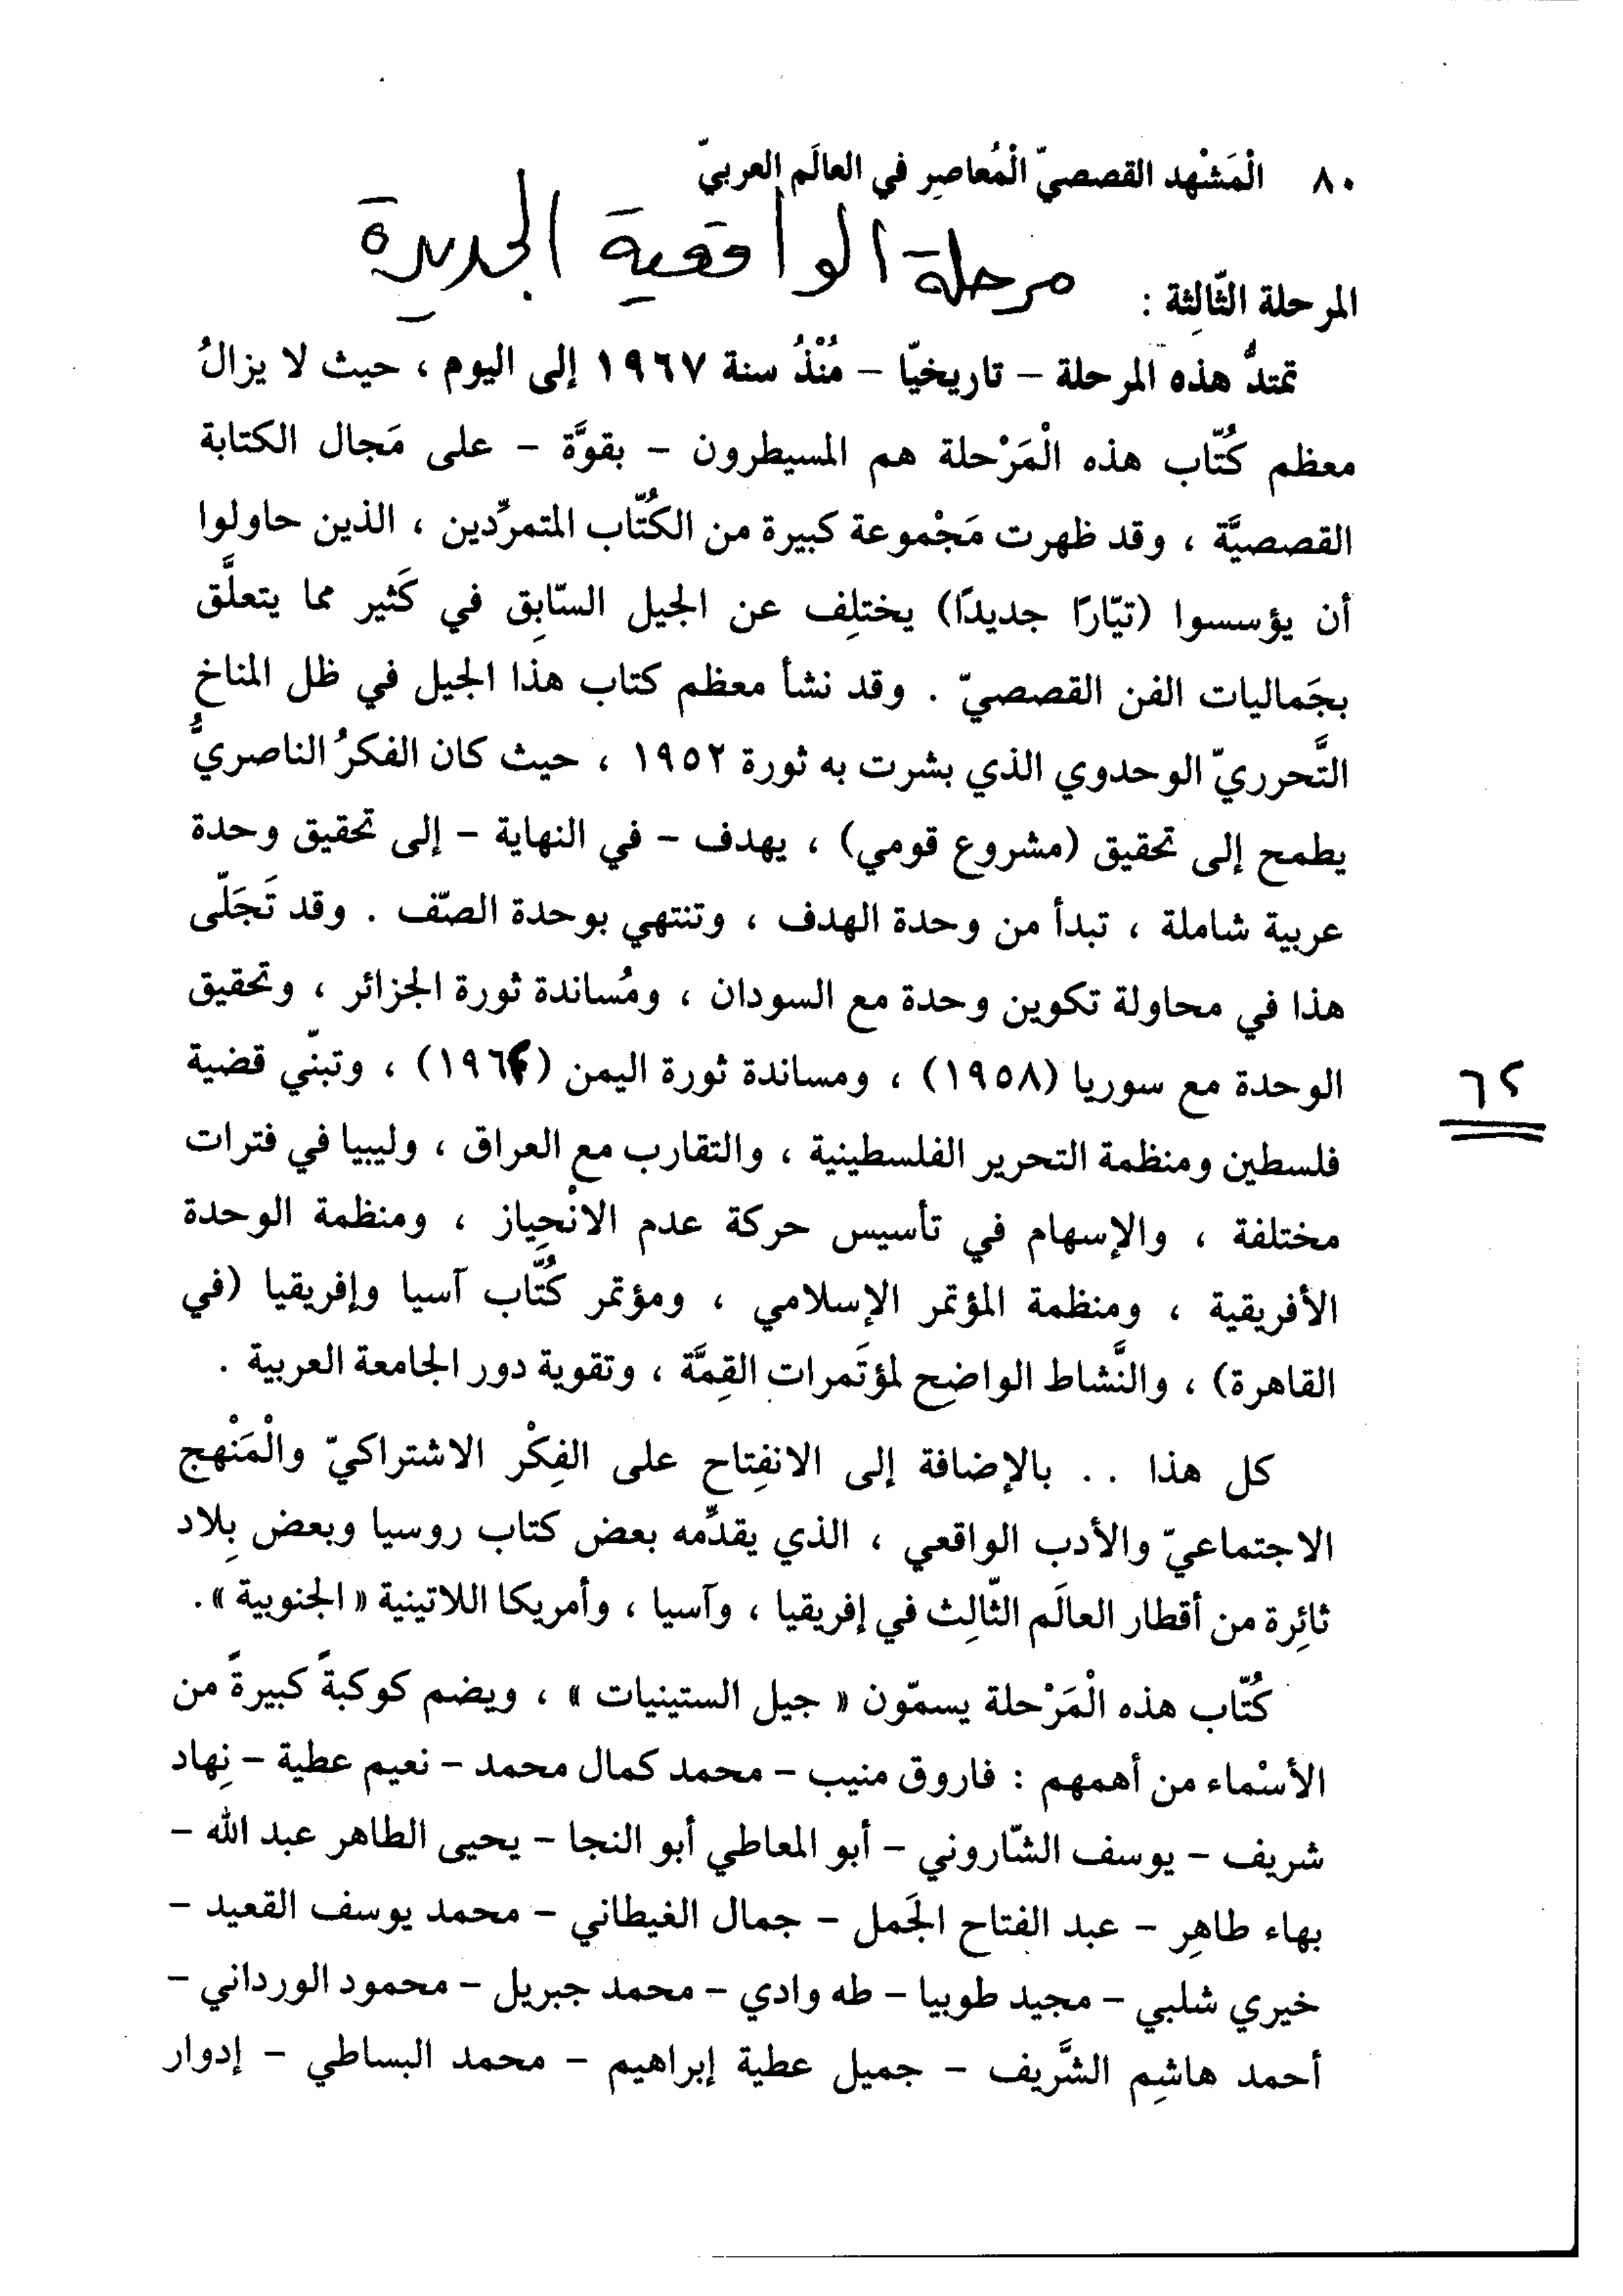 ٨٠ الْمَشْهد القصصيّ الْمُعاصِر في العالَم العربيّ
مرحلة الواقعية الجديدة
المرحلة الثّالِثة :
تمتدُّ هذه المرحلة – تاريخيّا – مُنْذُ سنة ١٩٦٧ إلى اليوم ، حيث لا يزالُ
معظم كُتّاب هذه الْمَرْحلة هم المسيطرون – بقوَّة – على مَجال الكتابة
القصصيَّة ، وقد ظهرت مَجْموعة كبيرة من الكُتّاب المتمرِّدين ، الذين حاولوا
أن يؤسسوا (تيّارًا جديدًا) يختلِف عن الجيل السّابِق في كَثير مما يتعلَّق
بجَماليات الفن القصصيّ . وقد نشأ معظم كتاب هذا الجيل في ظل المناخ
التَّحرريّ الوحدوي الذي بشرت به ثورة ١٩٥٢ ، حيث كان الفكرُ الناصريُّ
يطمح إلى تحقيق (مشروع قومي) ، يهدف – في النهاية – إلى تحقيق وحدة
عربية شاملة ، تبدأ من وحدة الهدف ، وتنتهي بوحدة الصّف . وقد تَجَلّى
هذا في محاولة تكوين وحدة مع السودان ، ومُساندة ثورة الجزائر ، وتحقيق
الوحدة مع سوريا (١٩٥٨) ، ومساندة ثورة اليمن (١٩٦٢) ، وتبنّي قضية
٦٢
فلسطين ومنظمة التحرير الفلسطينية ، والتقارب مع العراق ، وليبيا في فترات
مختلفة ، والإسهام في تأسيس حركة عدم الانْحِياز ، ومنظمة الوحدة
الأفريقية ، ومنظمة المؤتمر الإسلامي ، ومؤتمر كُتَّاب آسيا وإفريقيا (في
القاهرة) ، والنَّشاط الواضِح لمؤتَمرات القِمَّة ، وتقوية دور الجامعة العربية .
كل هذا .. بالإضافة إلى الانفِتاح على الفِكْر الاشتراكيّ والْمَنْهج
الاجتماعيّ والأدب الواقعي ، الذي يقدِّمه بعض كتاب روسيا وبعض بِلاد
ثائِرة من أقطار العالَم الثّالِث في إفريقيا ، وآسيا ، وأمريكا اللاتينية « الجنوبية » .
كُتّاب هذه الْمَرْحلة يسمّون « جيل الستينيات » ، ويضم كوكبةً كبيرةً من
الأسْماء من أهمهم : فاروق منيب – محمد كمال محمد – نعيم عطية – نِهاد
شريف – يوسف الشّاروني – أبو المعاطي أبو النجا – يحيى الطاهر عبد الله –
بهاء طاهِر – عبد الفتاح الجَمل – جمال الغيطاني – محمد يوسف القعيد –
خيري شلبي – مجيد طوبيا – طه وادي – محمد جبريل – محمود الورداني –
أحمد هاشِم الشَّريف – جميل عطية إبراهيم – محمد البساطي – إدوار